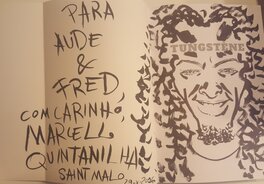 PARA
AUDE
&
FRED,
COM CARINHO,
MARCELLO
QUINTANILHA
SAINT MALO,
TUNGSTÈNE